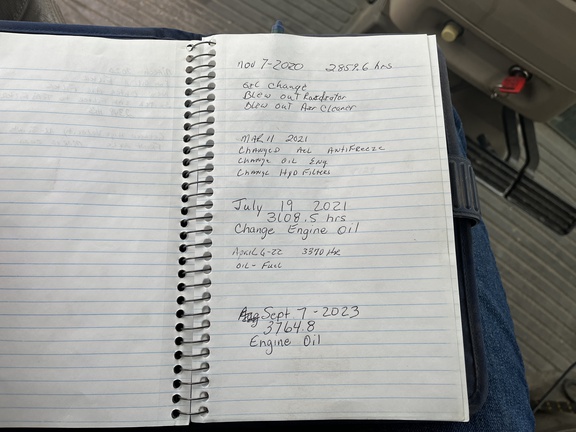 Nov 7-2020 2859.6 hrs
Oil Change
Blew out Raidiator
Blew out Air Cleaner
MAR 11 2021
Changed All AntiFreeze
Change Oil Eng
Change Hyd Filters
July 19 2021
3108.5 hrs
Change Engine Oil
April 6-22 3370 Hr
Oil - Fuel
Sept 7 - 2023
3764.8
Engine Oil